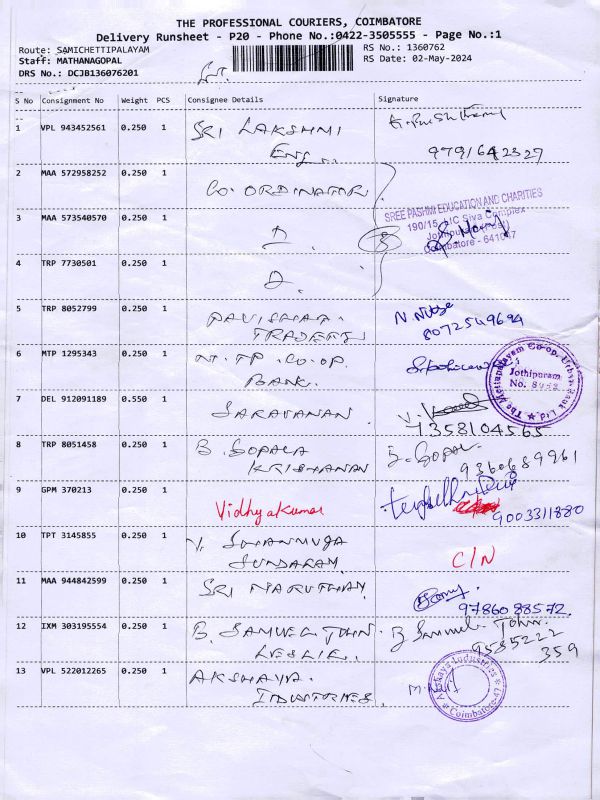 THE PROFESSIONAL COURIERS, COIMBATORE
Delivery Runsheet - P20 - Phone No.:0422-3505555 - Page No.:1
Route: SAMICHETTIPALAYAM
Staff: MATHANAGOPAL
DRS No.: DCJB136076201
RS No.: 1360762
RS Date: 02-May-2024
S No Consignment No Weight PCS Consignee Details Signature
1 VPL 943452561 0.250 1 SRI LAKSHMI
ENG 9791642327
2 MAA 572958252 0.250 1 CO-ORDINATOR
SREE PASHMI EDUCATION AND CHARITIES
190/15, LIC Siva Complex
Coimbatore - 641047
3 MAA 573540570 0.250 1
4 TRP 7730501 0.250 1
5 TRP 8052799 0.250 1 N. Nithya
TRADERS 8072549694
6 MTP 1295343 0.250 1 M.T.P. CO-OP.
BANK.
The Mettupalayam Co-op. Urban Bank Ltd
Jothipuram
7 DEL 912091189 0.550 1 SARAVANAN
7358104565
8 TRP 8051458 0.250 1 B. GOPALA B. GOPAL
KRISHANAN 9360689961
9 GPM 370213 0.250 1
Vidhyakumar 9003311880
10 TPT 3145855 0.250 1 V. SHANMUGA
SUNDARAM. C/N
11 MAA 944842599 0.250 1 SRI MARUTHAM
9786088572
12 IXM 303195554 0.250 1 B. SAMUEL JOHN B Samuel John
LESLIE. 9585222
359
13 VPL 522012265 0.250 1 AKSHAYA
INDUSTRIES.
Akshaya Industries
Coimbatore-47